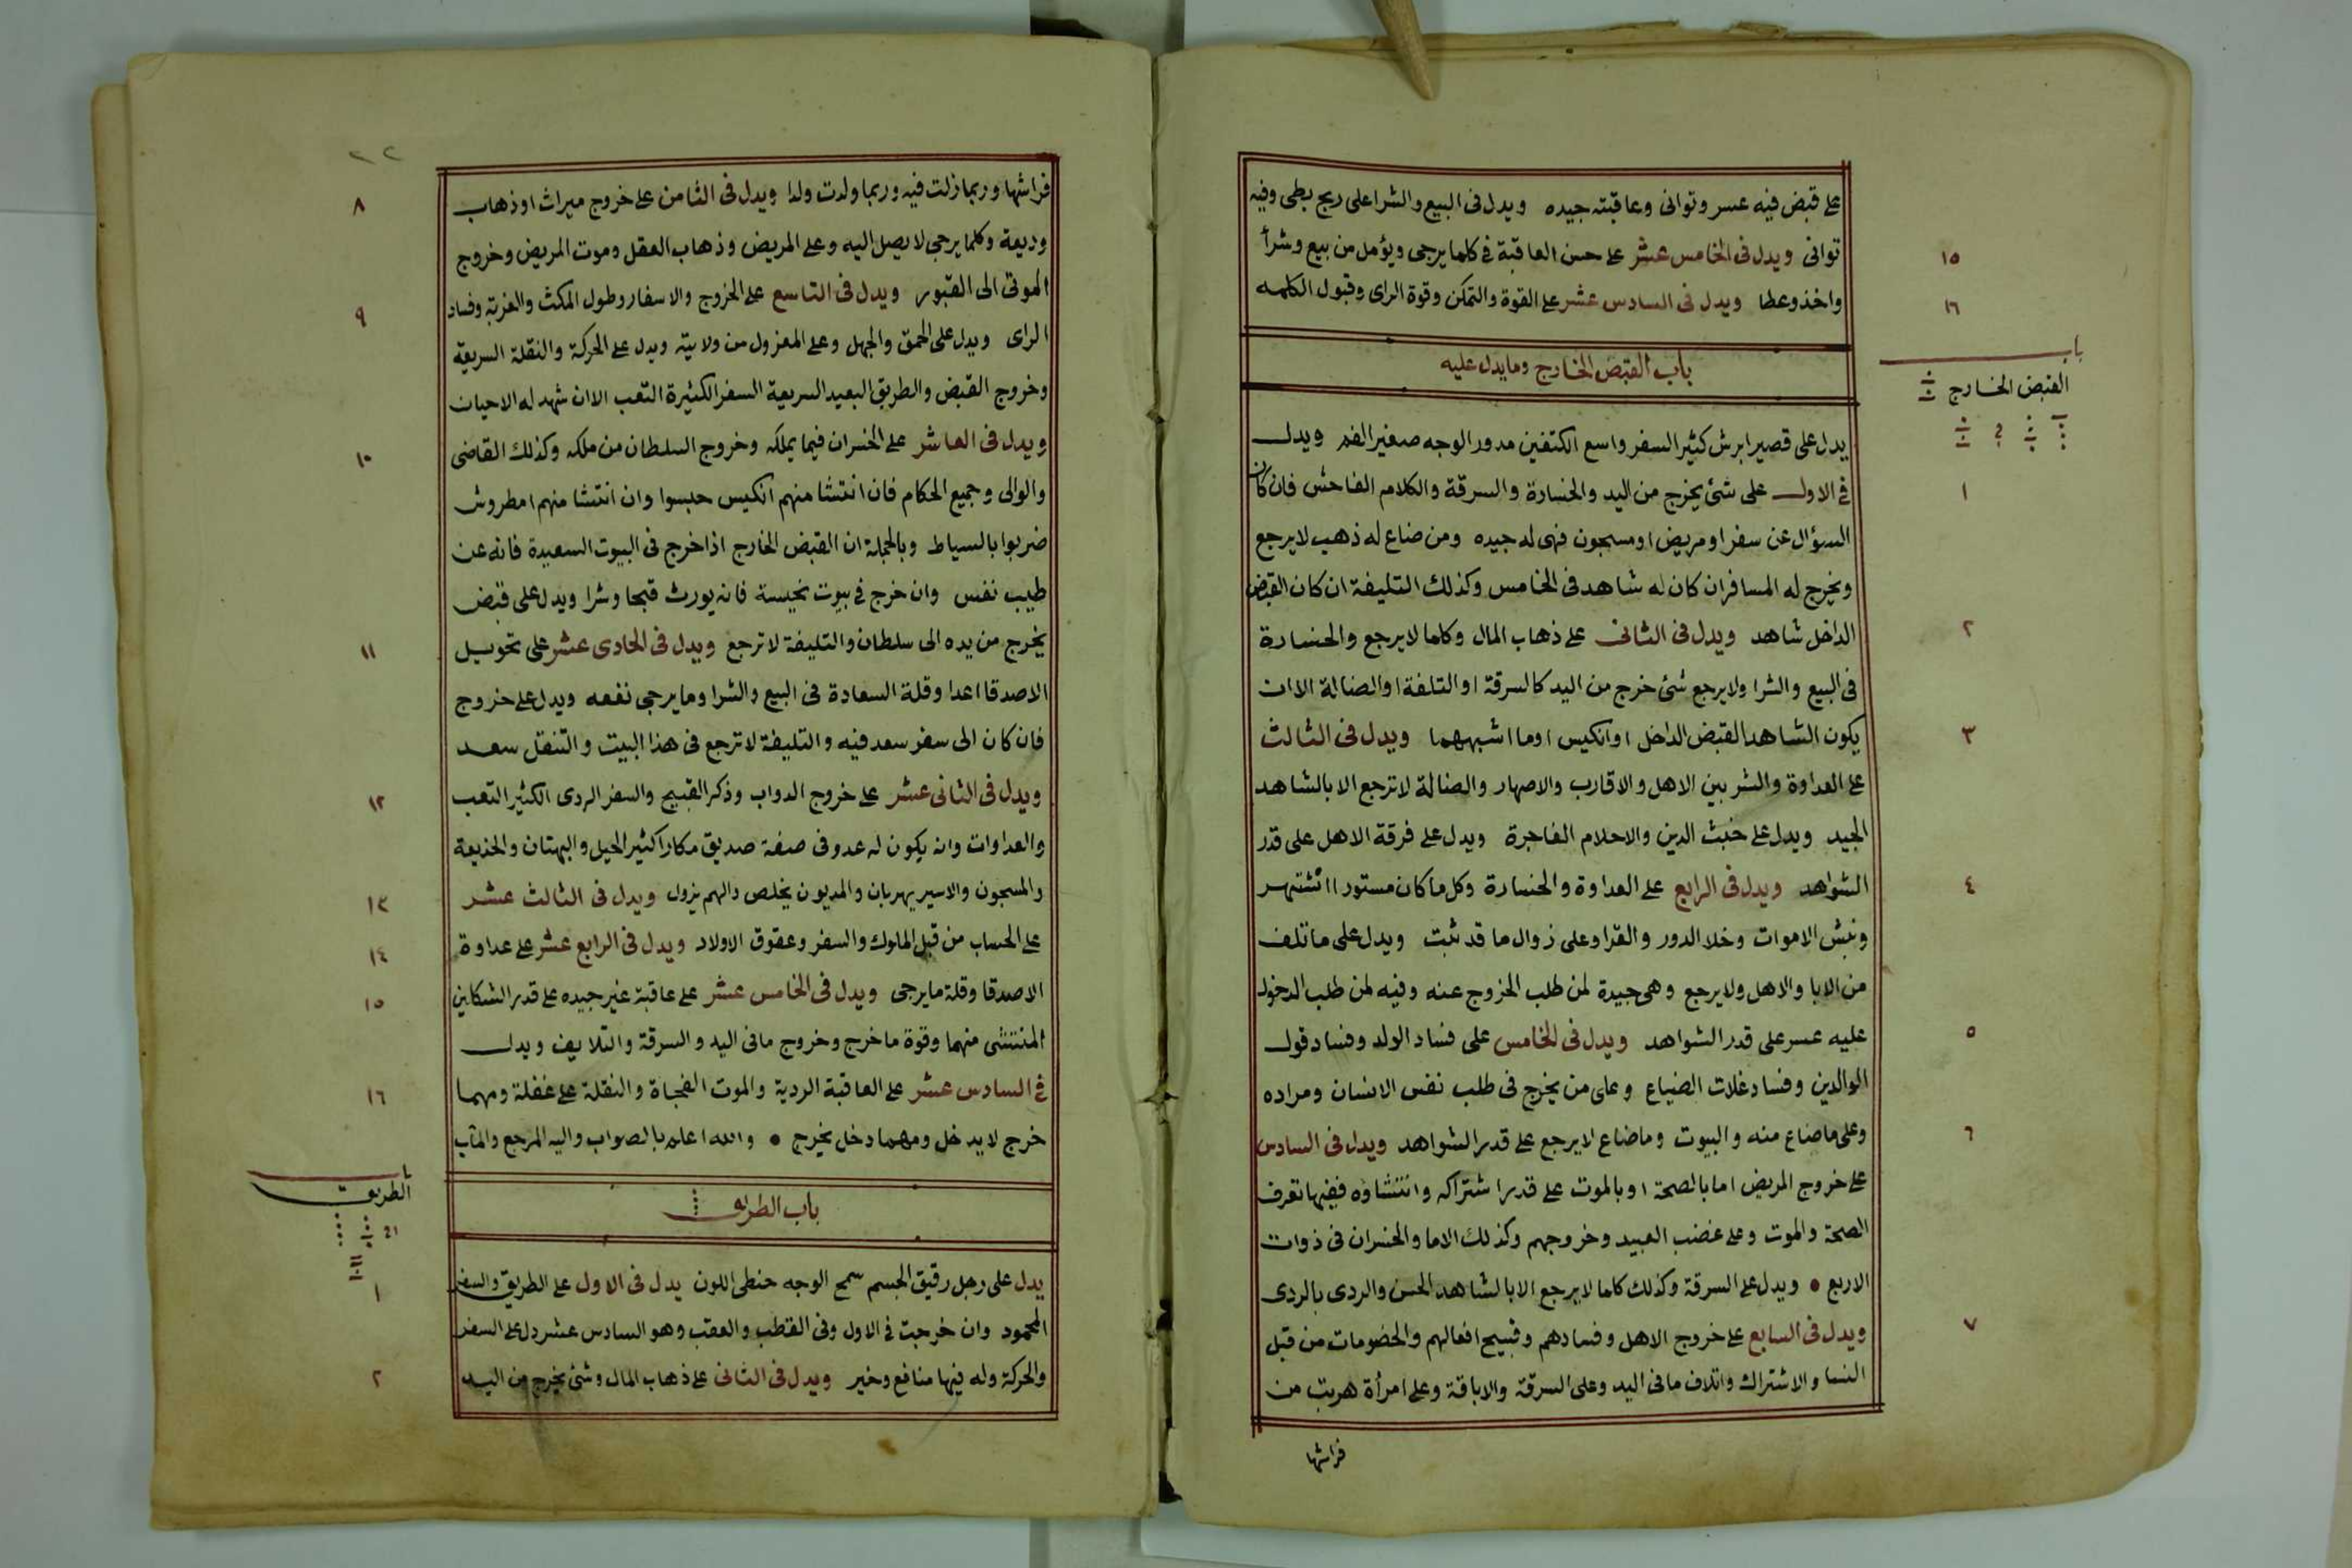 على قبض فيه عسر وتوانى وعاقبته جيده ويدل فى البيع والشرا على ربح بطى وفيه
توانى ويدل فى الخامس عشر على حسن العاقبة فى كلما يرجى ويؤمل من بيع وشرأ
١٥
واخذ وعطا ويدل فى السادس عشر على القوة والتمكن وقوة الراى وقبول الكلمه
١٦
باب القبض الخارج وما يدل عليه
باب
القبض الخارج
يدل على قصير ابرش كثير السفر واسع الكتفين مدور الوجه صغير الفم ويدل
فى الاول على شئ يخرج من اليد والخسارة والسرقة والكلام الفاحش فان كان
١
السؤال عن سفر او مريض او مسجون فهى له جيده ومن ضاع له ذهب لا يرجع
ويخرج له المسافر ان كان له شاهد فى الخامس وكذلك التليفة ان كان القبض
الداخل شاهد ويدل فى الثانى على ذهاب المال وكلما لا يرجع والخسارة
٢
فى البيع والشرا ولا يرجع شئ خرج من اليد كالسرقة او التلفة او الضالة الا ان
يكون الشاهد القبض الداخل او انكيس او ما اشبههما ويدل فى الثالث
٣
على العداوة والشر بين الاهل والاقارب والاصهار والضالة لا ترجع الا بالشاهد
الجيد ويدل على خبث الدين والاحلام الفاجرة ويدل على فرقة الاهل على قدر
الشواهد ويدل فى الرابع على العداوة والخسارة وكل ما كان مستورا اشتهر
٤
ونبش الاموات وخلا الدور والقرا وعلى زوال ما قد ثبت ويدل على ما تلف
من الابا والاهل ولا يرجع وهى جيدة لمن طلب الخروج عنه وفيه لمن طلب الدخول
عليه عسر على قدر الشواهد ويدل فى الخامس على فساد الولد وفساد قول
٥
الوالدين وفساد غلات الضياع وعلى من يخرج فى طلب نفس الانسان ومراده
وعلى ما ضاع منه والبيوت وما ضاع لا يرجع على قدر الشواهد ويدل فى السادس
٦
على خروج المريض اما بالصحة او بالموت على قدر اشتراكه وانتشاؤه ففيها تعرف
الصحة والموت وعلى غضب العبيد وخروجهم وكذلك الاما والخسران فى ذوات
الاربع • ويدل على السرقة وكذلك كلما لا يرجع الا بالشاهد الحسن والردى بالردى
ويدل فى السابع على خروج الاهل وفسادهم وقبيح افعالهم والخصومات من قبل
٧
النسا والاشتراك واتلاف ما فى اليد وعلى السرقة والاباقة وعلى امرأة هربت من
فراشها
٢٢
فراشها وربما زلت فيه وربما ولدت ولدا ويدل فى الثامن على خروج ميراث او ذهاب
٨
وديعة وكلما يرجى لا يصل اليه وعلى المريض وذهاب العقل وموت المريض وخروج
الموتى الى القبور ويدل فى التاسع على الخروج والاسفار وطول المكث والغربة وفساد
٩
الراى ويدل على الحمق والجهل وعلى المعزول من ولايته ويدل على الحركة والنقلة السريعة
وخروج القبض والطريق البعيد السريعة السفر الكثيرة التعب الا ان شهد له الاحيان
ويدل فى العاشر على الخسران فيما يملكه وخروج السلطان من ملكه وكذلك القاضى
١٠
والوالى وجميع الحكام فان انتشا منهم انكيس حبسوا وان انتشا منهم امطروش
ضربوا بالسياط وبالجملة ان القبض الخارج اذا خرج فى البيوت السعيدة فانه عن
طيب نفس وان خرج فى بيوت نحيسة فانه يورث قبحا وشرا ويدل على قبض
يخرج من يده الى سلطان والتليفة لا ترجع ويدل فى الحادى عشر على تحويل
١١
الاصدقا اعدا وقلة السعادة فى البيع والشرا وما يرجى نفعه ويدل على خروج
فان كان الى سفر سعد فيه والتليفة لا ترجع فى هذا البيت والتنقل سعد
ويدل فى الثانى عشر على خروج الدواب وذكر القبيح والسفر الردى الكثير التعب
١٢
والعداوات وانه يكون له عدو فى صفة صديق مكارا كثير الحيل والبهتان والخديعة
والمسجون والاسير يهربان والمديون يخلص والهم يزول ويدل فى الثالث عشر
١٣
على الحساب من قبل الملوك والسفر وعقوق الاولاد ويدل فى الرابع عشر على عداوة
١٤
الاصدقا وقلة ما يرجى ويدل فى الخامس عشر على عاقبة غير جيده على قدر الشكلين
١٥
المنتشى منهما وقوة ما خرج وخروج ما فى اليد والسرقة والتلايف ويدل
فى السادس عشر على العاقبة الردية والموت الفجاة والنقلة على غفلة ومهما
١٦
خرج لا يدخل ومهما دخل يخرج • والله اعلم بالصواب واليه المرجع والمآب
باب الطريق
باب
الطريق
يدل على رجل رقيق الجسم سمح الوجه حنطى اللون يدل فى الاول على الطريق والسفر
١
المحمود وان خرجت فى الاول وفى القطب والعقب وهو السادس عشر دل على السفر
والحركة وله فيها منافع وخير ويدل فى الثانى على ذهاب المال وشئ يخرج من اليد
٢